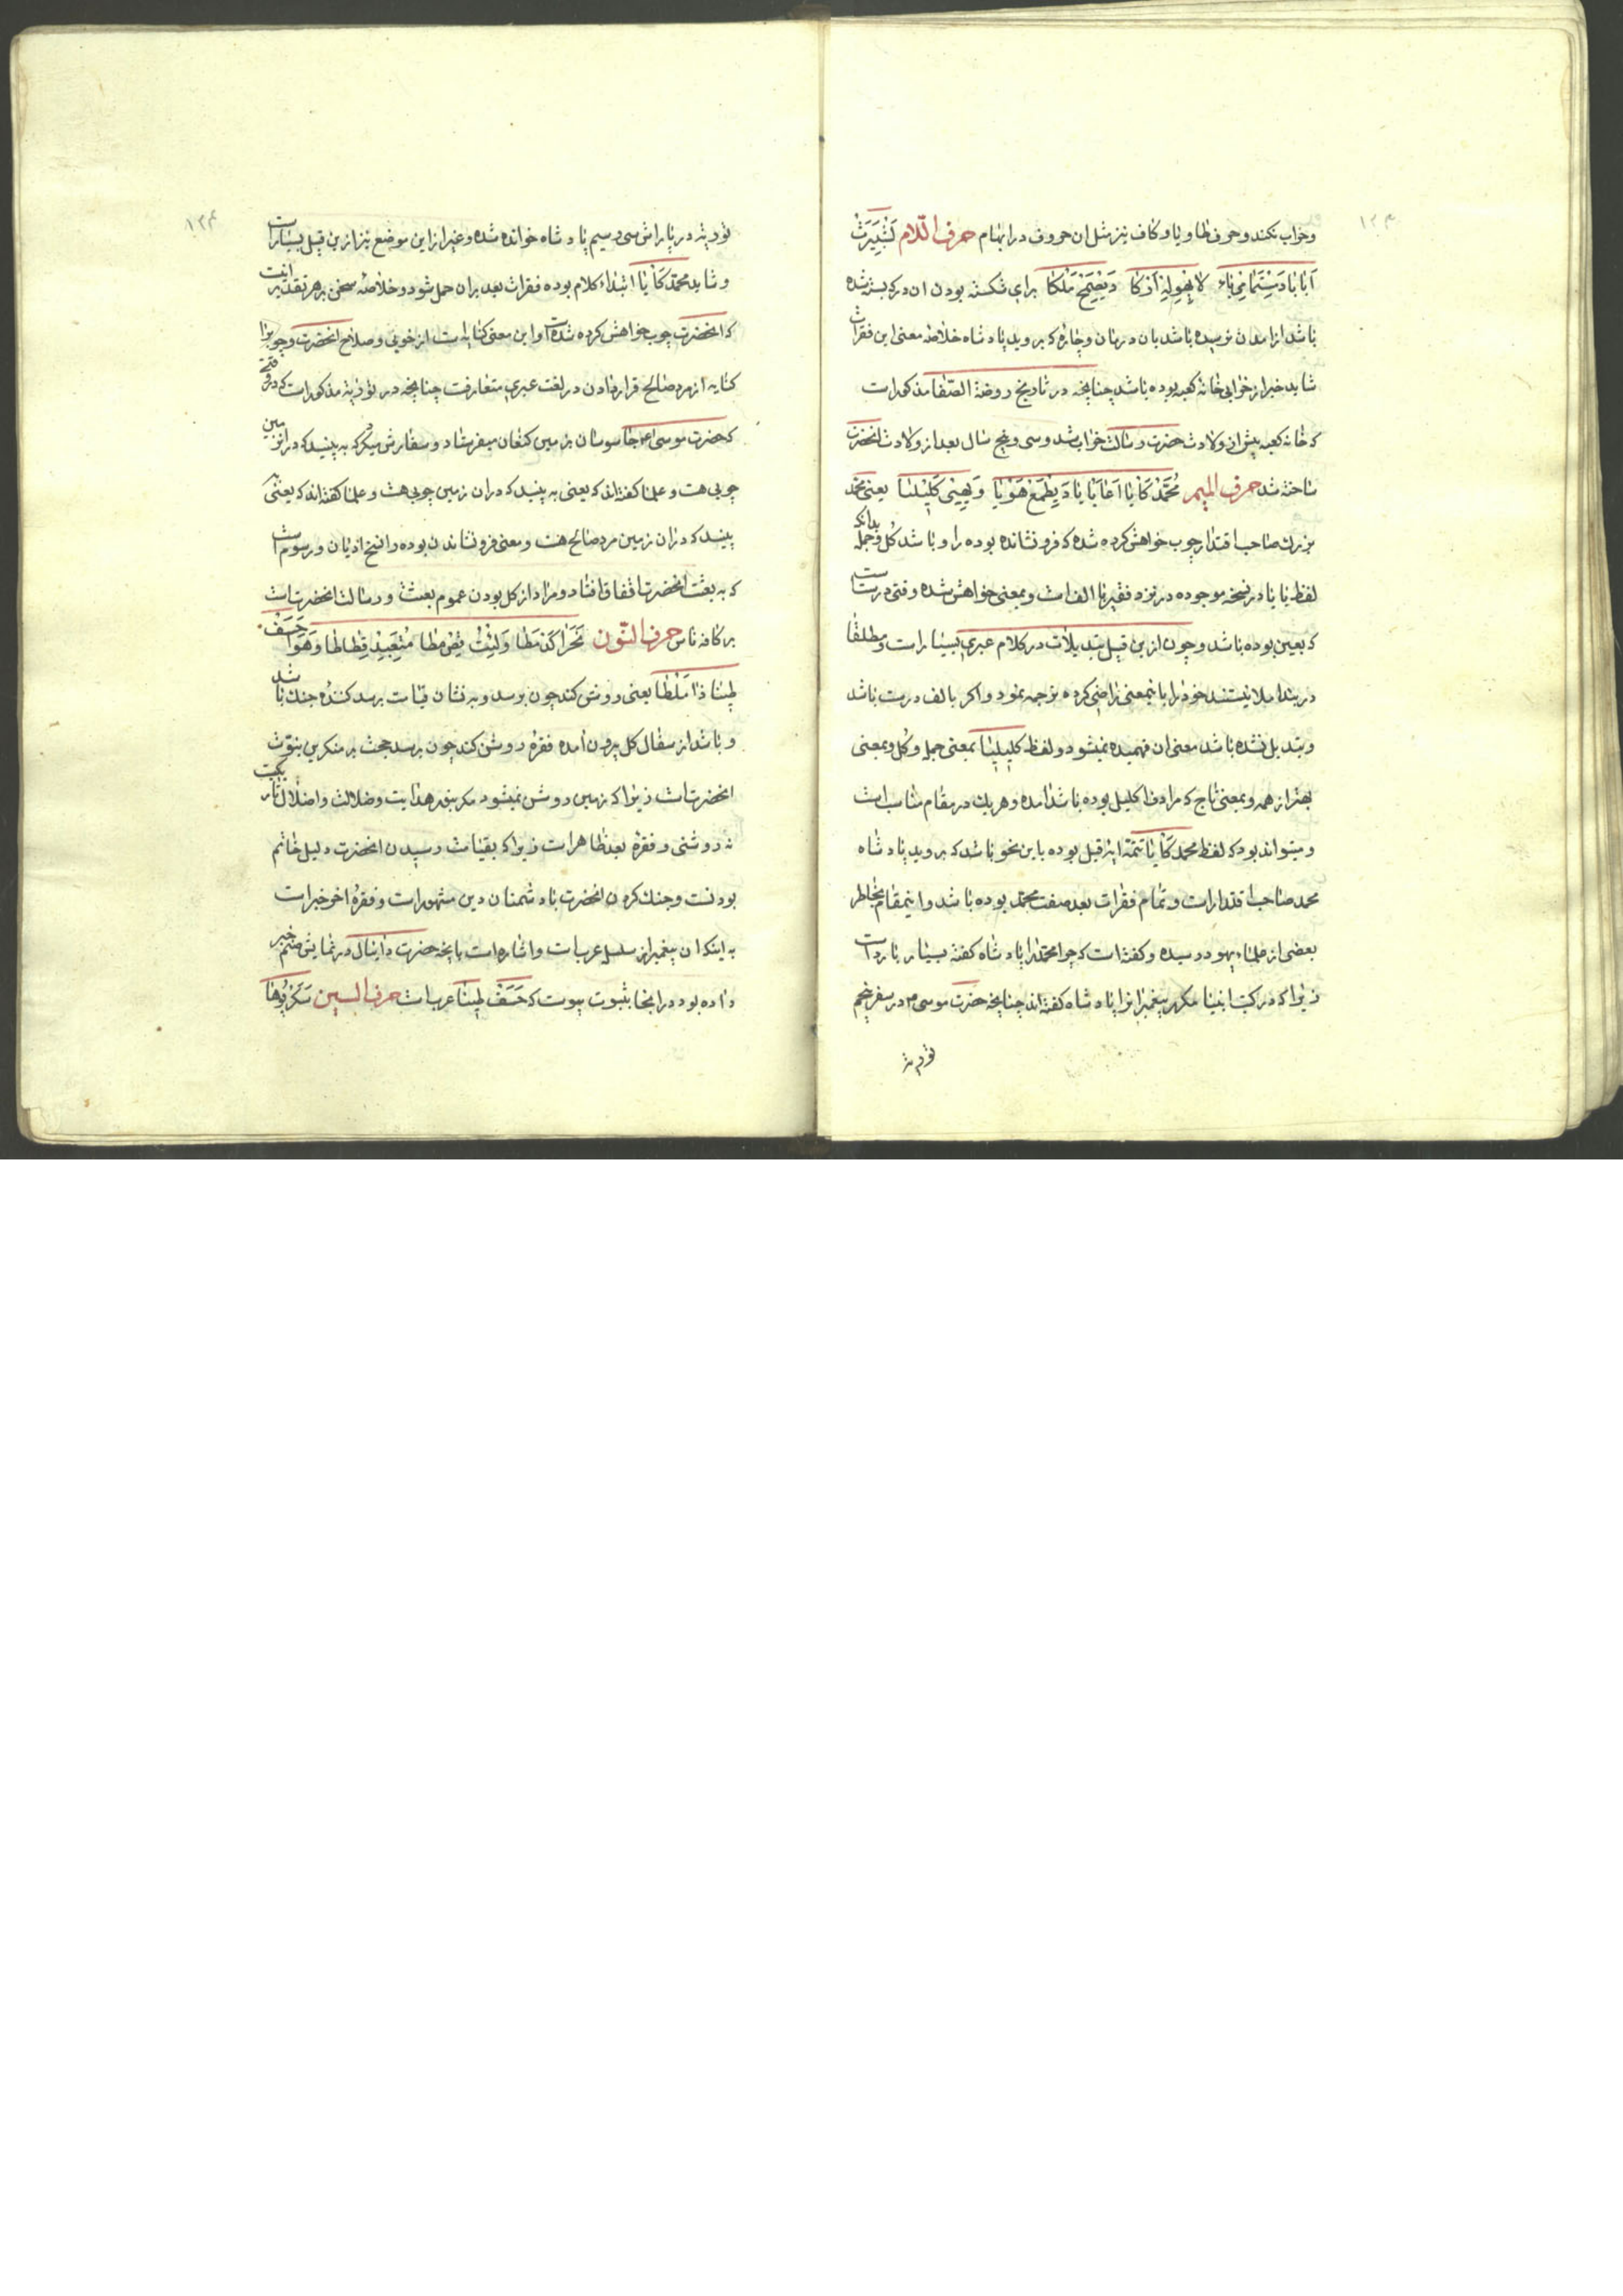 وخراب نکند و حرف طا و یا و کاف نیز مثل ان حروف در ابهام حرف اللام
برای شکسته بودن ان درکه بسته شده
باشد از امدن نرسیده باشد بان درمان و چاره که بروید پادشاه خلاصه معنی این فقرات
شاید خبر از خرابی خانه کعبه بوده باشد چنانچه در تاریخ روضة الصفا مذکور است
که خانه کعبه پیش از ولادت حضرت رسالت خراب شد و سی و پنج سال بعد از ولادت انحضرت
ساخته شد حرف المیم محمد کایا اعابایا دیطمع هویا ویهینی کلیلنا یعنی محمد
بزرك صاحب اقتدار چوب خواهش کرده شده که فرو نشانده بوده را و باشد کل و جمله بدانکه
لفظ بابا در نسخه موجوده در نزد فقیر با الف است و بمعنی خواهش شده وقتی درست است
که بعین بوده باشد و چون از این قبیل تبدیلات در کلام عبری بسیار است و مطلقا
در بند املا نیستند خود را باینمعنی راضی کرده ترجمه نمود و اکر بالف درست باشد
و تبدیل نشده باشد معنی ان فهمیده نمیشود و لفظ کلیلینا بمعنی جمله و کل و بمعنی
بهتر از همه و بمعنی تاج که مرادف اکلیل بوده باشد امده و هر یك در مقام مناسب است
و میتواند بود که لفظ محمد کایا تتمه ایه قبل بوده باین نحو باشد که بروید پادشاه
محمد صاحب اقتدار است و تمام فقرات بعد صفت محمد بوده باشد و اینمقام بخاطر
بعضی از علماء یهود رسیده و کفته است که چرا محمد را پادشاه کفته بسیار بارد است
زیرا که در کتب انبیا مکرر پیغمبرانرا پادشاه کفته اند چنانچه حضرت موسی ۴ در سفر پنجم
توریة
توریة در پاراش سی و سیم پادشاه خوانده شده و غیر از این موضع نیز از این قبیل بسیار است
و شاید محمد کایا ابتداء کلام بوده فقرات بعد بران حمل شود و خلاصه سخن بر هر تقدیر اینست
که انحضرت چوب خواهش کرده شده است و این معنی کنایه است از خوبی و صلاح انحضرت و چوبرا
کنایه از مرد صالح قرار دادن در لغت عبری متعارفست چنانچه در توریة مذکور است که در وقتیکه
که حضرت موسی ۴ جاسوسان بزمین کنعان میفرستاد و سفارش میکرد که به بینید که در انزمین
چوبی هست و علما کفته اند که یعنی به بینید که دران زمین چوبی هست و علما کفته اند که یعنی
بینید که دران زمین مرد صالح هست و معنی فرو نشاندن بوده را نسخ ادیان و رسوم است
که به بعثت انحضرت اتفاق افتاد و مراد از کل بودن عموم بعثت و رسالت انحضرت است
بر کافه ناس حرف النون
یعنی روشن کند چون برسد و به نشان قیامت برسد کننده جنك باشد
و باشد از سفال کل بیرون امده فقره روشن کند چون برسد حجت بر منکرین بنوت
انحضرت است زیرا که زمین روشن نمیشود مکر بنور هدایت و ضلالت و اضلال تاریکیست
نه روشنی و فقره بعد ظاهر است زیرا که بقیامت رسیدن انحضرت دلیل خاتم
بودنست و جنك کردن انحضرت با دشمنان دین مشهور است و فقره اخر خبر است
به اینکه ان پیغمبر از سلسله عرب است و اشاره است بانچه حضرت دانیال در نمایش صنم خبر
داده بود در اینجا بثبوت پیوست که حسف طینا عرب است حرف السین